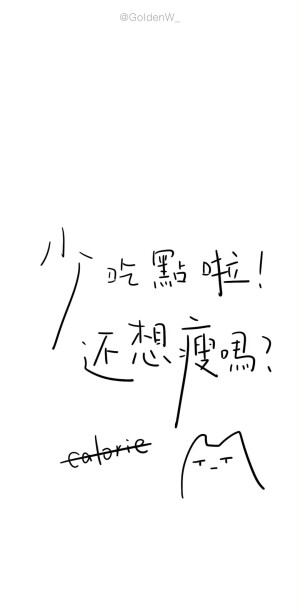 @GoldenW_
少吃點啦!
还想瘦嗎?
calorie